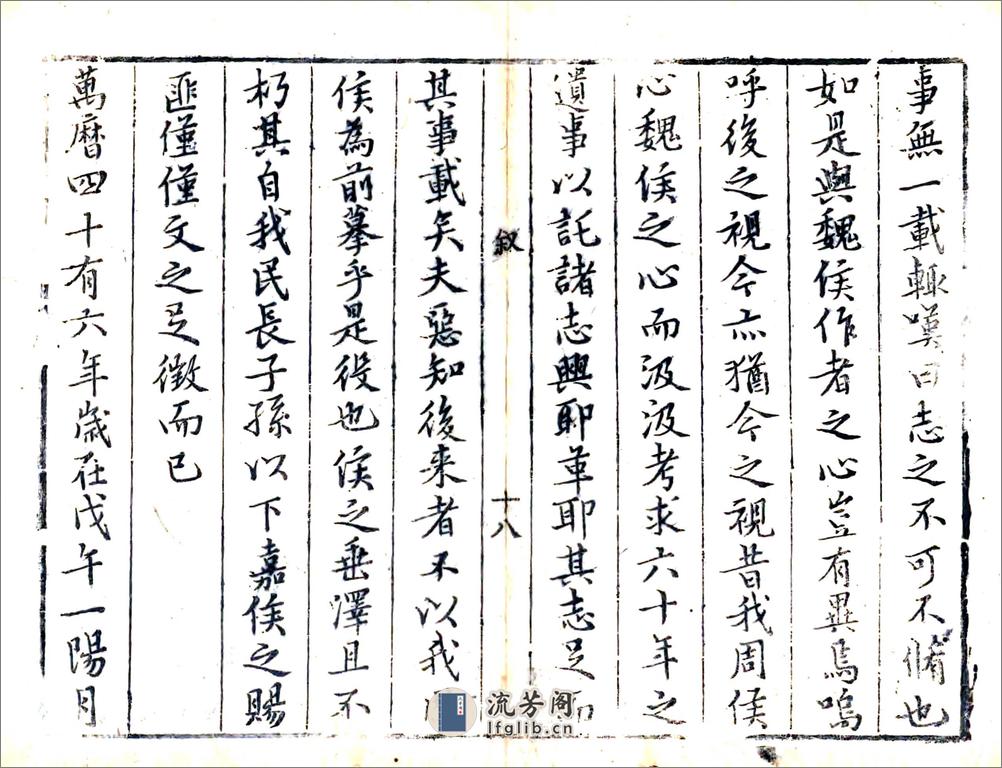 事無一載輙嘆曰志之不可不脩也
如是與魏侯作者之心豈有異焉嗚
呼後之視今亦猶今之視昔我周侯
心魏侯之心而汲汲考求六十年之
遺事以託諸志興耶革耶其志足
叙
十八
其事載矣夫惡知後来者不以我
侯為前摹乎是役也侯之垂澤且不
朽其自我民長子孫以下嘉侯之賜
匪僅僅文之足徵而已
萬曆四十有六年歲在戊午一陽月
流芳阁
lfglib.cn